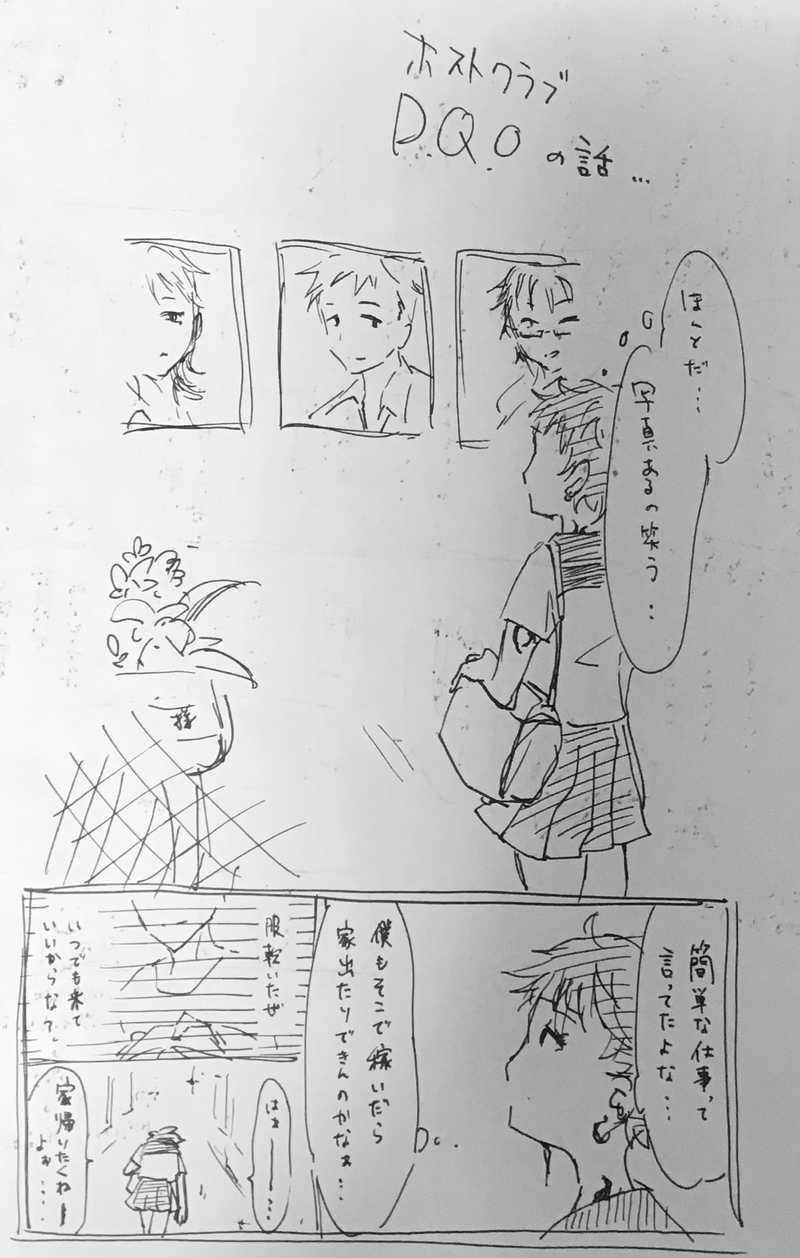 ホストクラブ
D.Q.Oの話…
ほんとだ…
写真あるの笑う‥
様
簡単な仕事って
言ってたよな…
僕もそこで稼いだら
家出たりできんのかなぁ…
服乾いたぜ
いつでも来て
いいからな？。
はぁー…
家帰りたくねー
よぉ…